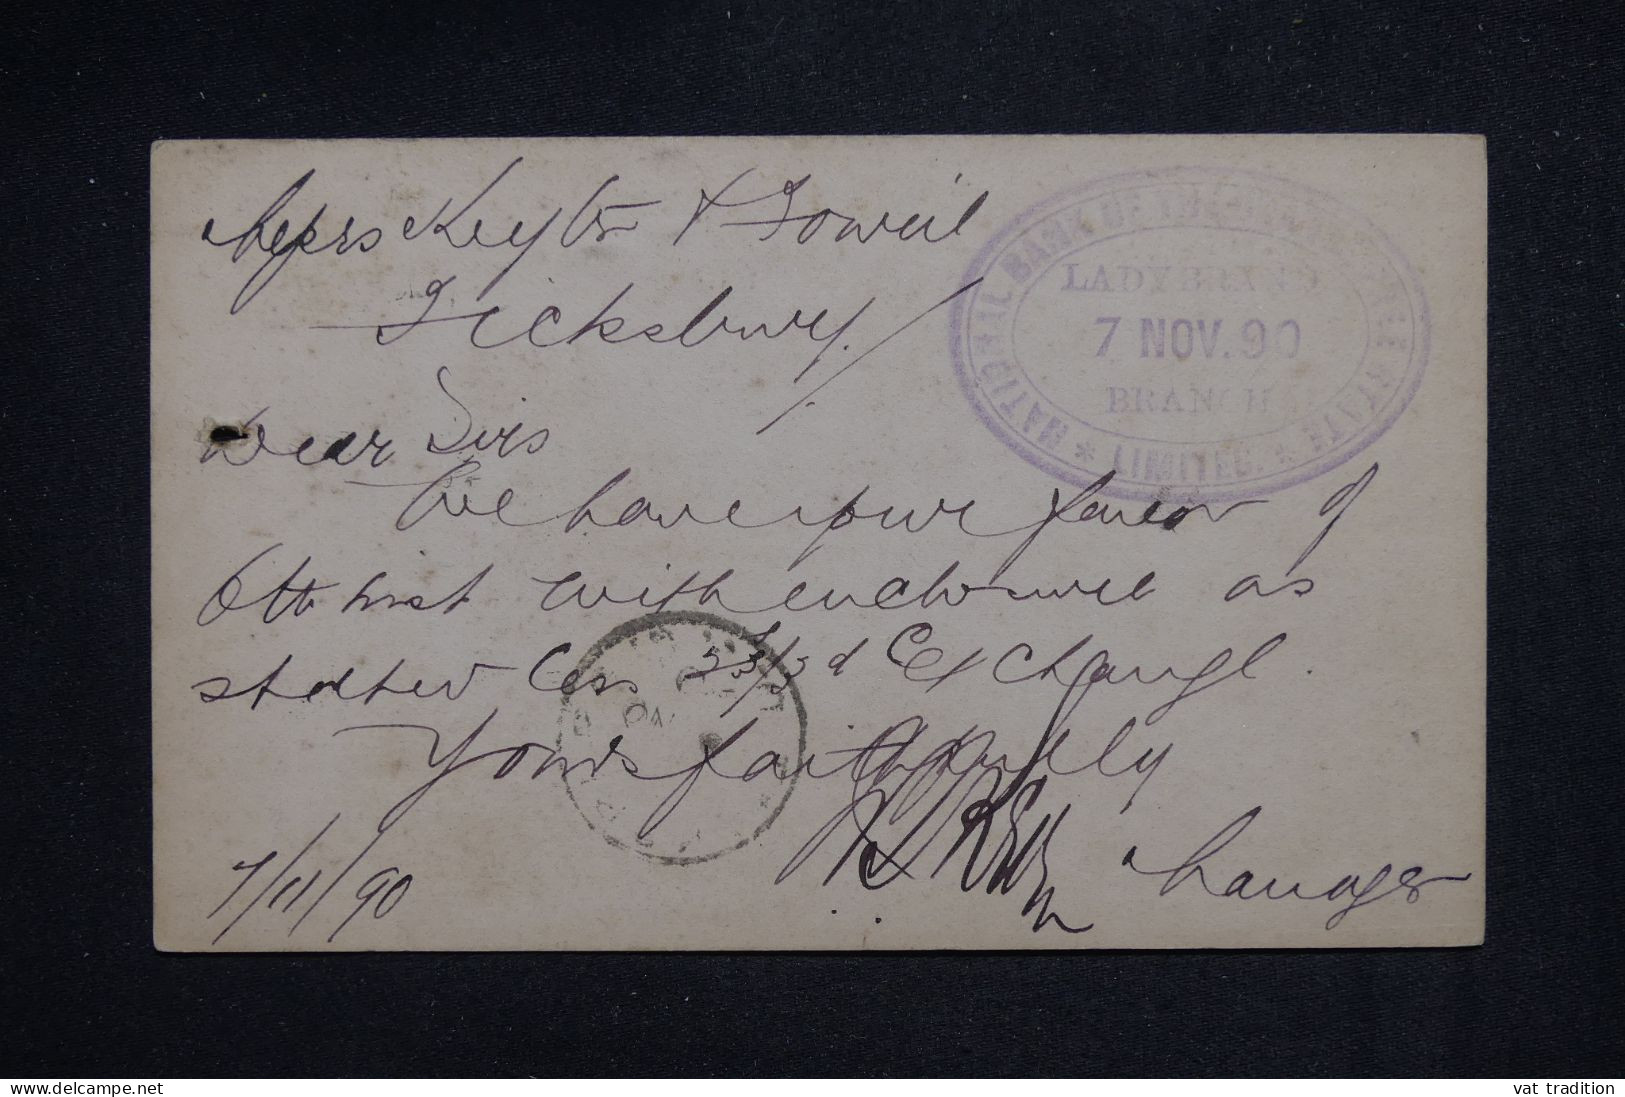 Messrs Keyter & Fowell
Ficksburg
NATIONAL BANK OF THE ORANGE FREE STATE
LADYBRAND
7 NOV. 90
BRANCH
* LIMITED. *
Dear Sirs
We have your favor of
6th inst with enclosure as
stated less Exchange.
Yours faithfully
7/11/90
Manager
vat tradition